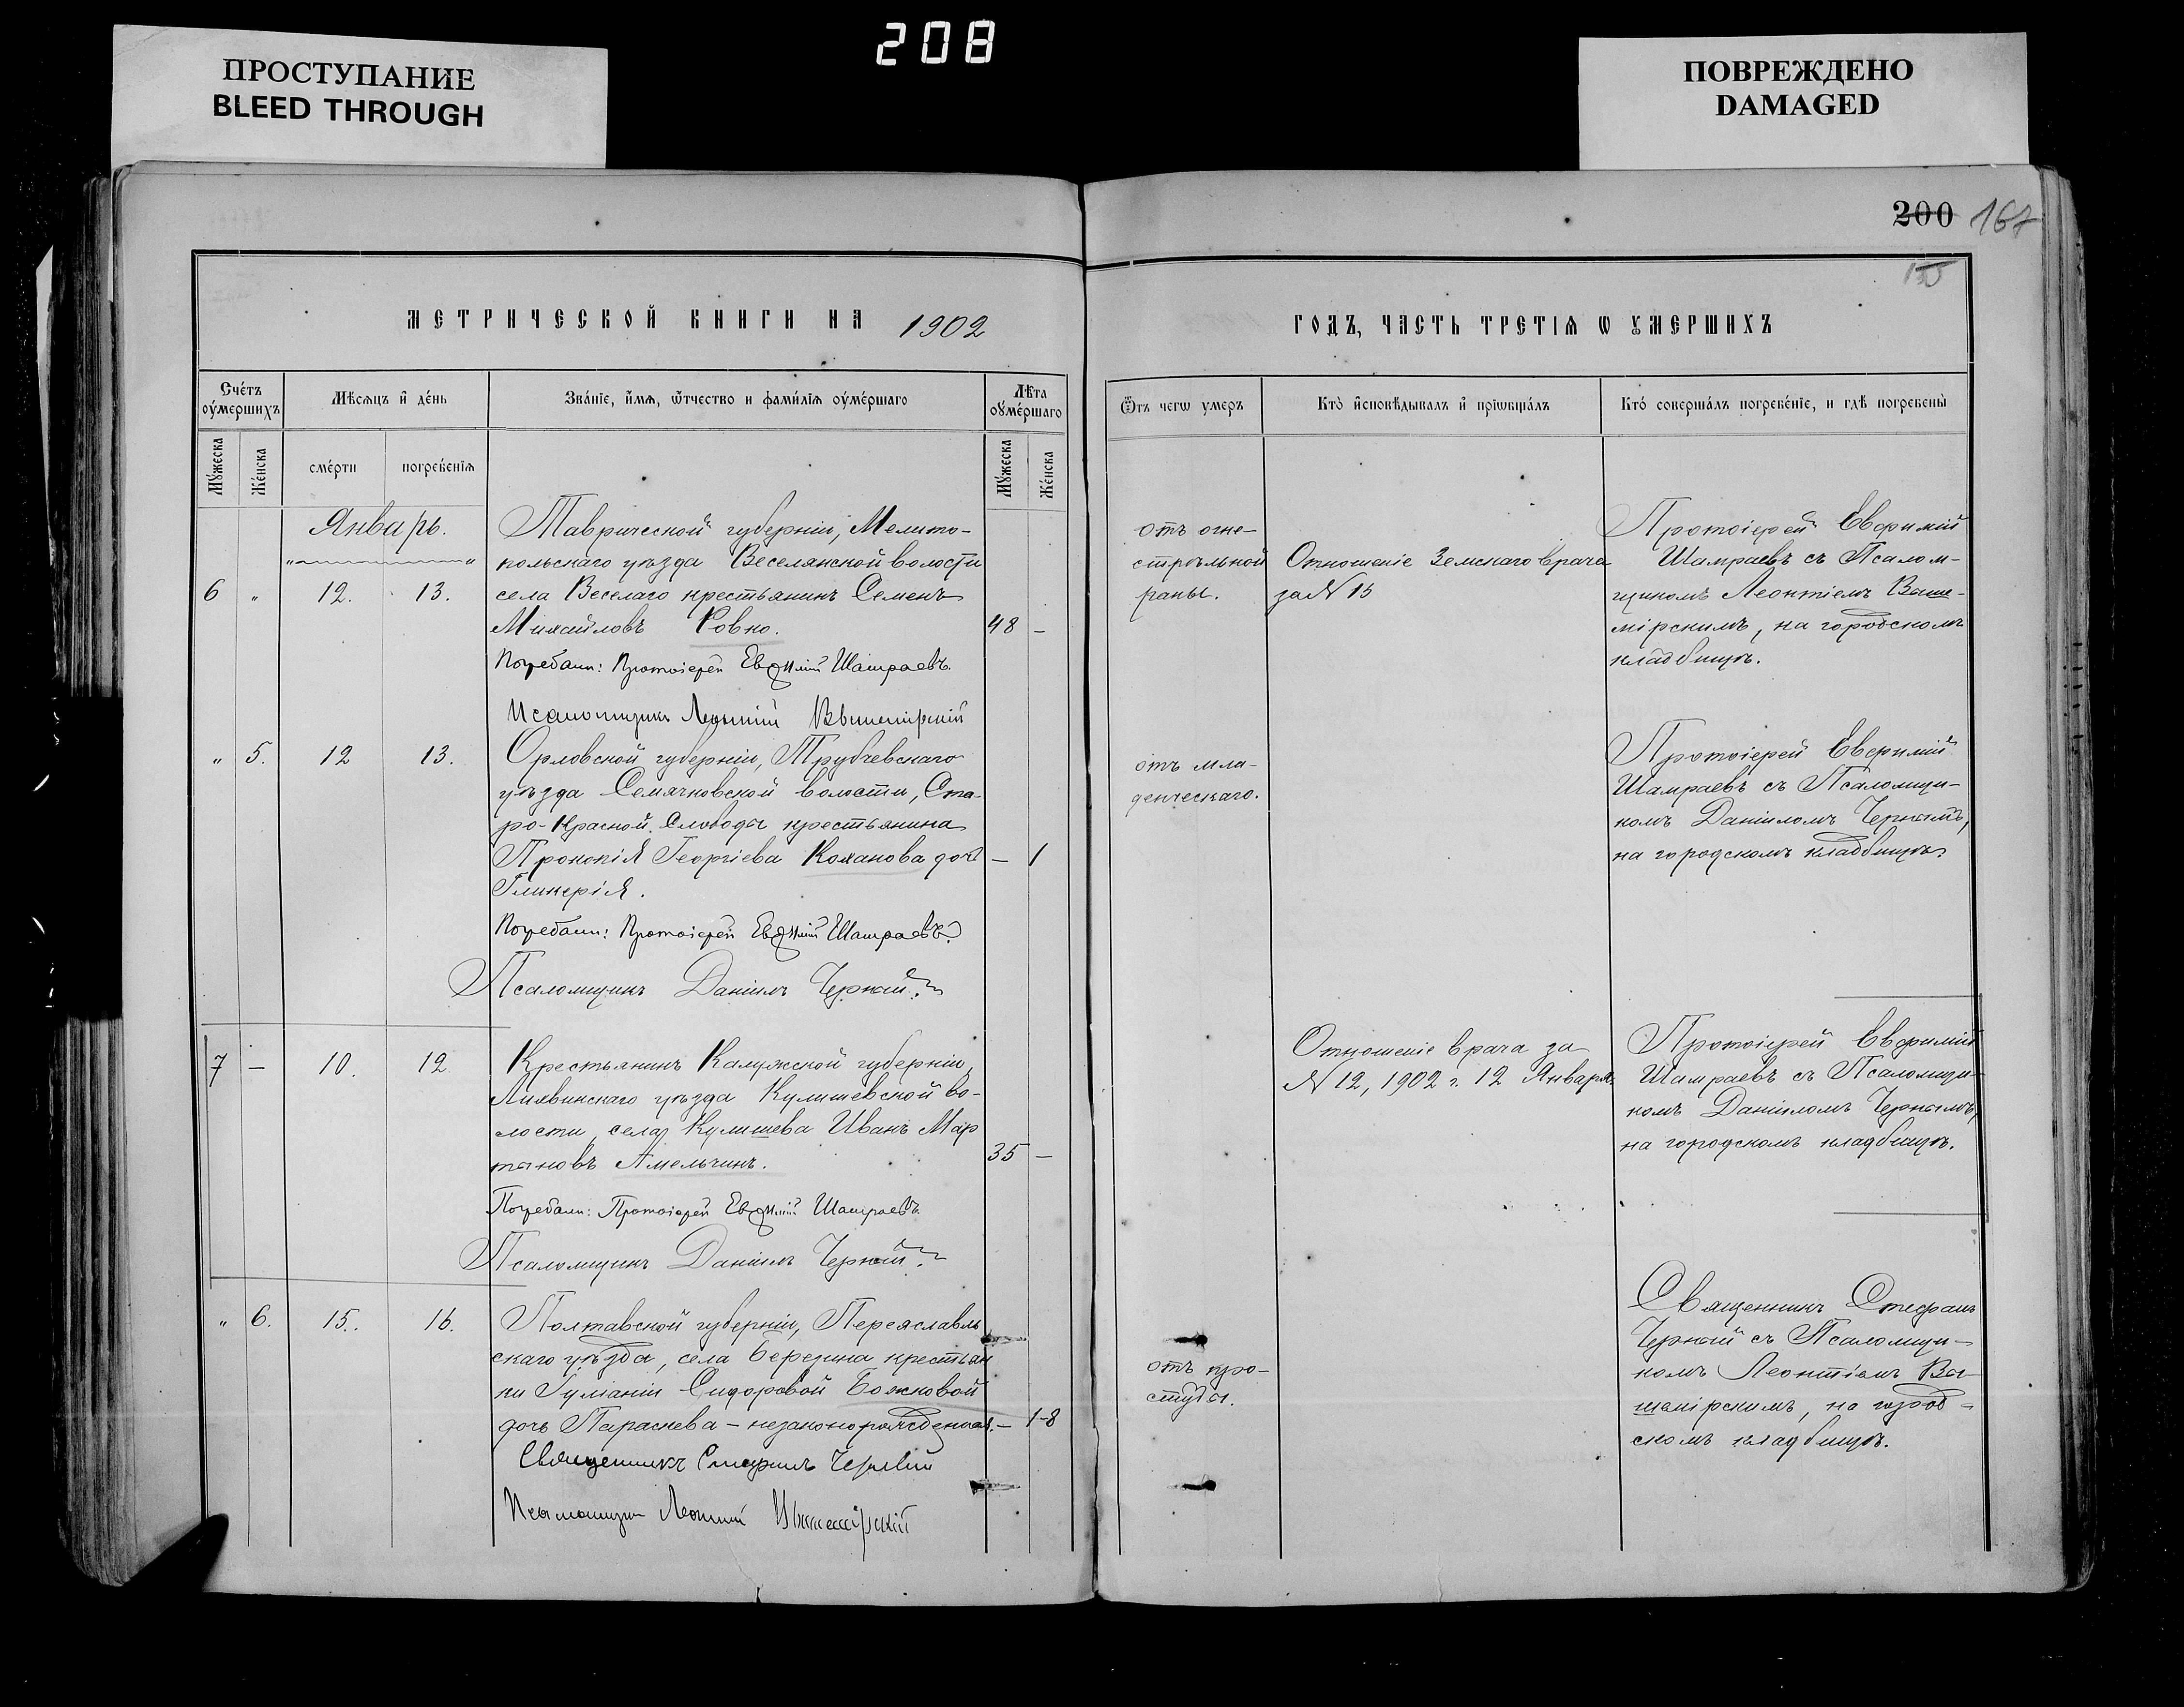 ПРОСТУПАНИЕ
BLEED THROUGH
208
ПОВРЕЖДЕНО
DAMAGED
200 167
155
МЕТРИЧЕСКОЙ КНИГИ НА 1902
ГОДЪ, ЧАСТЬ ТРЕТІѦ Ѡ ОУМЕРШИХЪ
Счетъ оумершихъ
Мѣсяцъ и день
Званіе, имя, ѿчество и фамилія оумершаго
Лѣта оумершаго
Ѿ чегѡ умеръ
Кто исповѣдывалъ и пріѡбщалъ
Кто совершалъ погребеніе, и гдѣ погребены
Мужеска
Женска
смерти
погребенія
Мужеска
Женска
Январь.
6 " 12. 13.
Таврической губерніи, Мелито-
польскаго уѣзда Веселянской волости
села Веселаго крестьянинъ Семенъ
Михайловъ Ровко. 48 —
Погребали: Протоіерей Евфимій Шамраевъ.
Псаломщикъ Леонтій Вышемірскій
отъ огне-
стрѣльной
раны.
Отношеніе Земскаго врача
за № 15
Протоіерей Евфимій
Шамраевъ съ Псалом-
щикомъ Леонтіемъ Выше-
мірскимъ, на городскомъ
кладбищѣ.
" 5. 12 13.
Орловской губерніи, Трубчевскаго
уѣзда Семячковской волости, Ста-
ро-Красной Слободы крестьянина
Прокопія Георгіева Коханова дочь — 1
Гликерія.
Погребали: Протоіерей Евфимій Шамраевъ.
Псаломщикъ Даніилъ Черный.
отъ мла-
денческаго.
Протоіерей Евфимій
Шамраевъ съ Псаломщи-
комъ Даніиломъ Чернымъ,
на городскомъ кладбищѣ.
7 — 10. 12
Крестьянинъ Калужской губерніи,
Лихвинскаго уѣзда Кулишевской во-
лости, села Кулишева Иванъ Мар
тыновъ Амельчинъ. 35 —
Погребали: Протоіерей Евфимій Шамраевъ
Псаломщикъ Даніилъ Черный.
Отношеніе врача за
№ 12, 1902 г. 12 Января.
Протоіерей Евфимій
Шамраевъ съ Псаломщи-
комъ Даніиломъ Чернымъ,
на городскомъ кладбищѣ.
" 6. 15. 16.
Полтавской губерніи, Переяславль
скаго уѣзда, села Березина крестьян
ки Гуліаніи Сидоровой Божковой
дочь Параскева — незаконорожденная. — 1-8
Священникъ Стефанъ Черный
Псаломщикъ Леонтій Вышемірскій
отъ про-
студы.
Священникъ Стефанъ
Черный съ Псаломщи-
комъ Леонтіемъ Вы-
шемірскимъ, на город-
скомъ кладбищѣ.